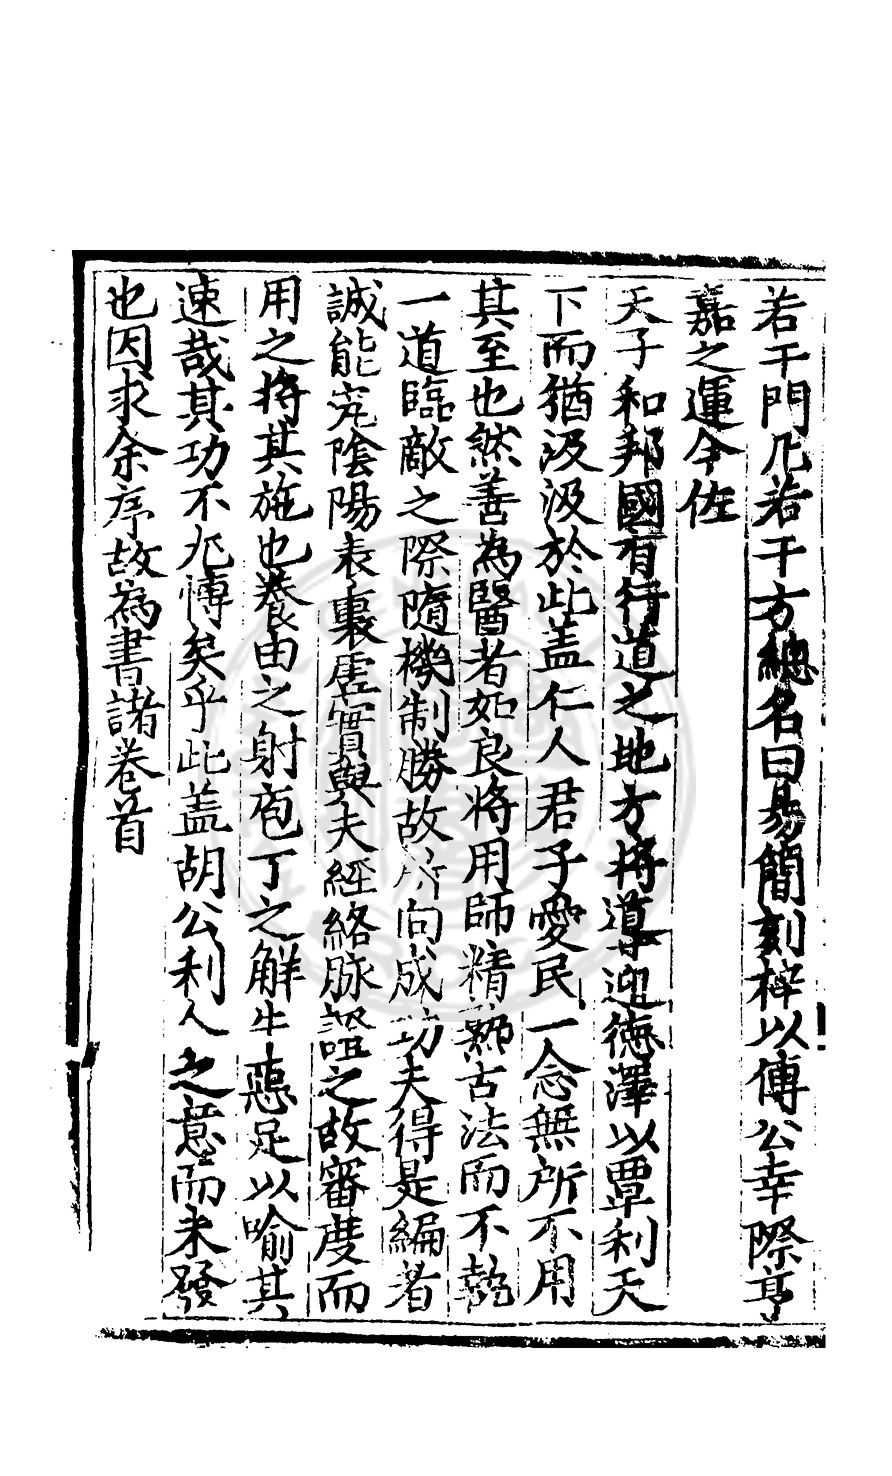 若干門凡若干方總名曰易簡刻梓以傳公幸際亨
嘉之運今佐
天子和邦國有行道之地方將導迎德澤以覃利天
下而猶汲汲於此蓋仁人君子愛民一念無所不用
其至也然善為醫者如良将用師精熟古法而不執
一道臨敵之際隨機制勝故所向成功夫得是編者
誠能究陰陽表裏虛實與夫經絡脉證之故審度而
用之將其施也養由之射庖丁之解牛惡足以喻其
速哉其功不亦博矣乎此蓋胡公利人之意而未發
也因求余序故為書諸卷首